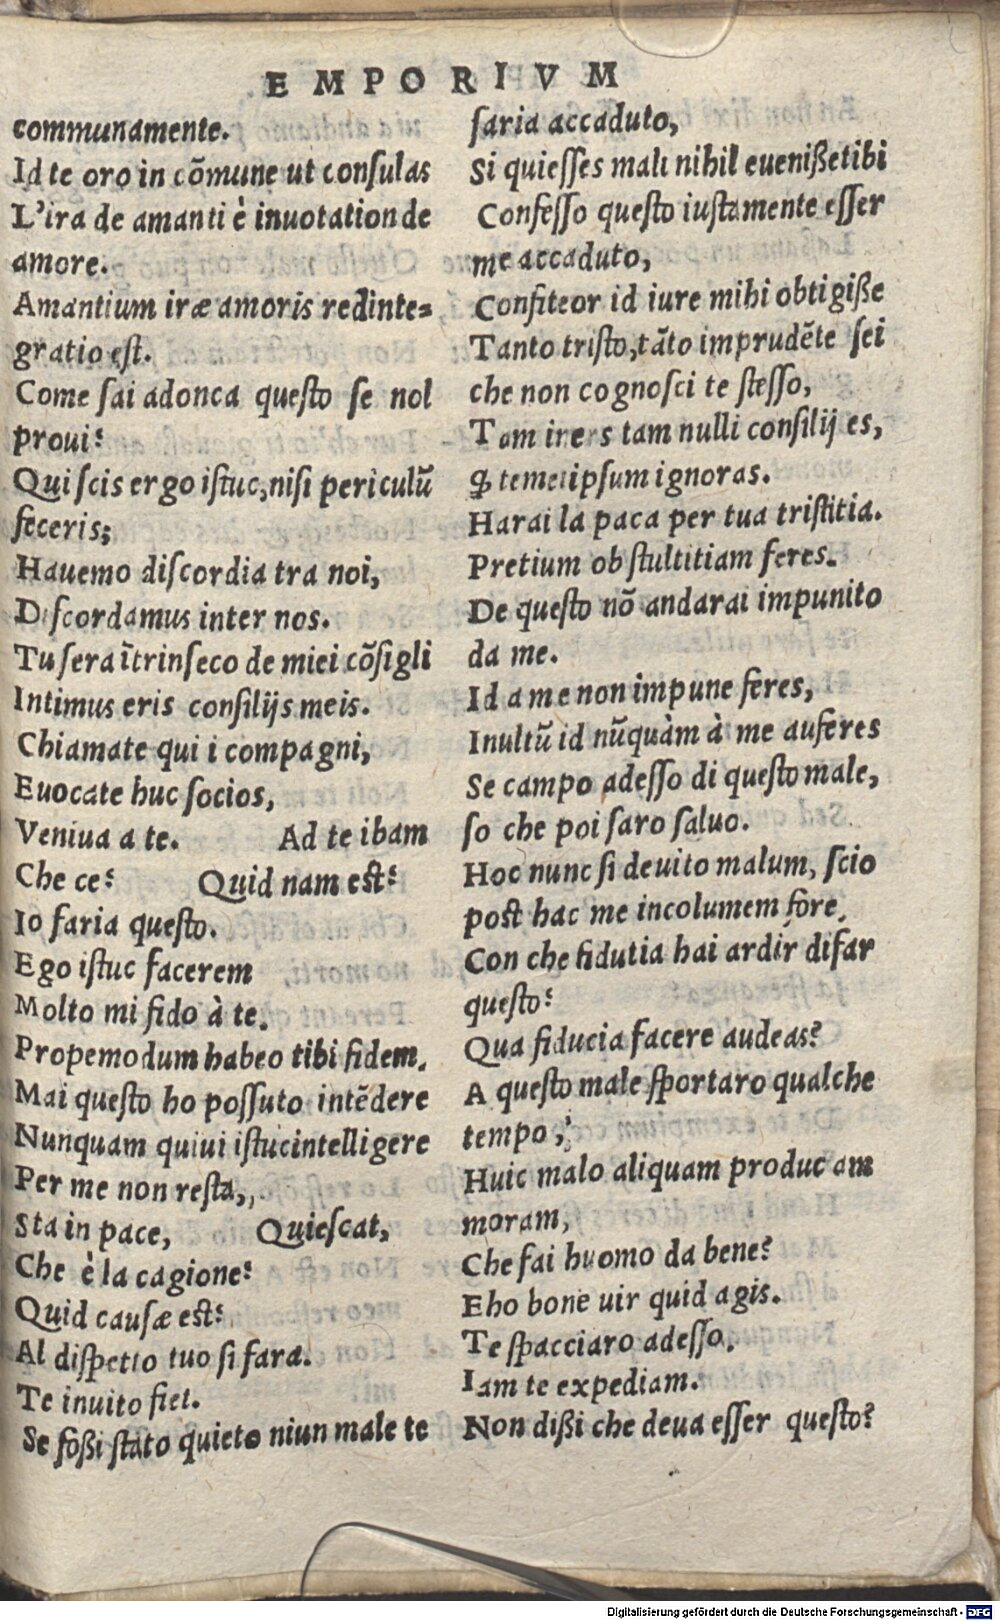 EMPORIVM
communamente.
Id te oro in cõmune ut conſulas
L'ira de amanti è inuotation de
amore.
Amantium iræ amoris redinte=
gratio eſt.
Come ſai adonca queſto ſe nol
proui?
Qui ſcis ergo iſtuc, niſi periculũ
feceris;
Hauemo diſcordia tra noi,
Diſcordamus inter nos.
Tu ſera ĩtrinſeco de miei cõſigli
Intimus eris conſilijs meis.
Chiamate qui i compagni,
Euocate huc ſocios,
Veniua a te. Ad te ibam
Che ce? Quid nam eſt?
Io faria queſto.
Ego iſtuc facerem
Molto mi fido à te.
Propemodum habeo tibi fidem.
Mai queſto ho poſſuto intẽdere
Nunquam quiui iſtuc intelligere
Per me non reſta,
Sta in pace, Quieſcat,
Che è la cagione?
Quid cauſæ eſt?
Al diſpetto tuo ſi fara.
Te inuito fiet.
Se foßi ſtato quieto niun male te
ſaria accaduto,
Si quieſſes mali nihil eueniſßet tibi
Confeſſo queſto iuſtamente eſſer
me accaduto,
Confiteor id iure mihi obtigiße
Tanto triſto, tãto imprudẽte ſei
che non cognoſci te ſteſſo,
Tam iners tam nulli conſilij es,
ꝙ temetipſum ignoras.
Harai la paca per tua triſtitia.
Pretium ob ſtultitiam feres.
De queſto nõ andarai impunito
da me.
Id a me non impune feres,
Inultũ id nũquàm à me auferes
Se campo adeſſo di queſto male,
ſo che poi ſaro ſaluo.
Hoc nunc ſi deuito malum, ſcio
poſt hac me incolumem fore,
Con che fidutia hai ardir difar
queſto?
Qua fiducia facere audeas?
A queſto male ſportaro qualche
tempo,
Huic malo aliquam producam
moram,
Che fai huomo da bene?
Eho bone uir quid agis.
Te ſpacciaro adeſſo.
Iam te expediam.
Non dißi che deua eſſer queſto?
Digitalisierung gefördert durch die Deutsche Forschungsgemeinschaft - DFG